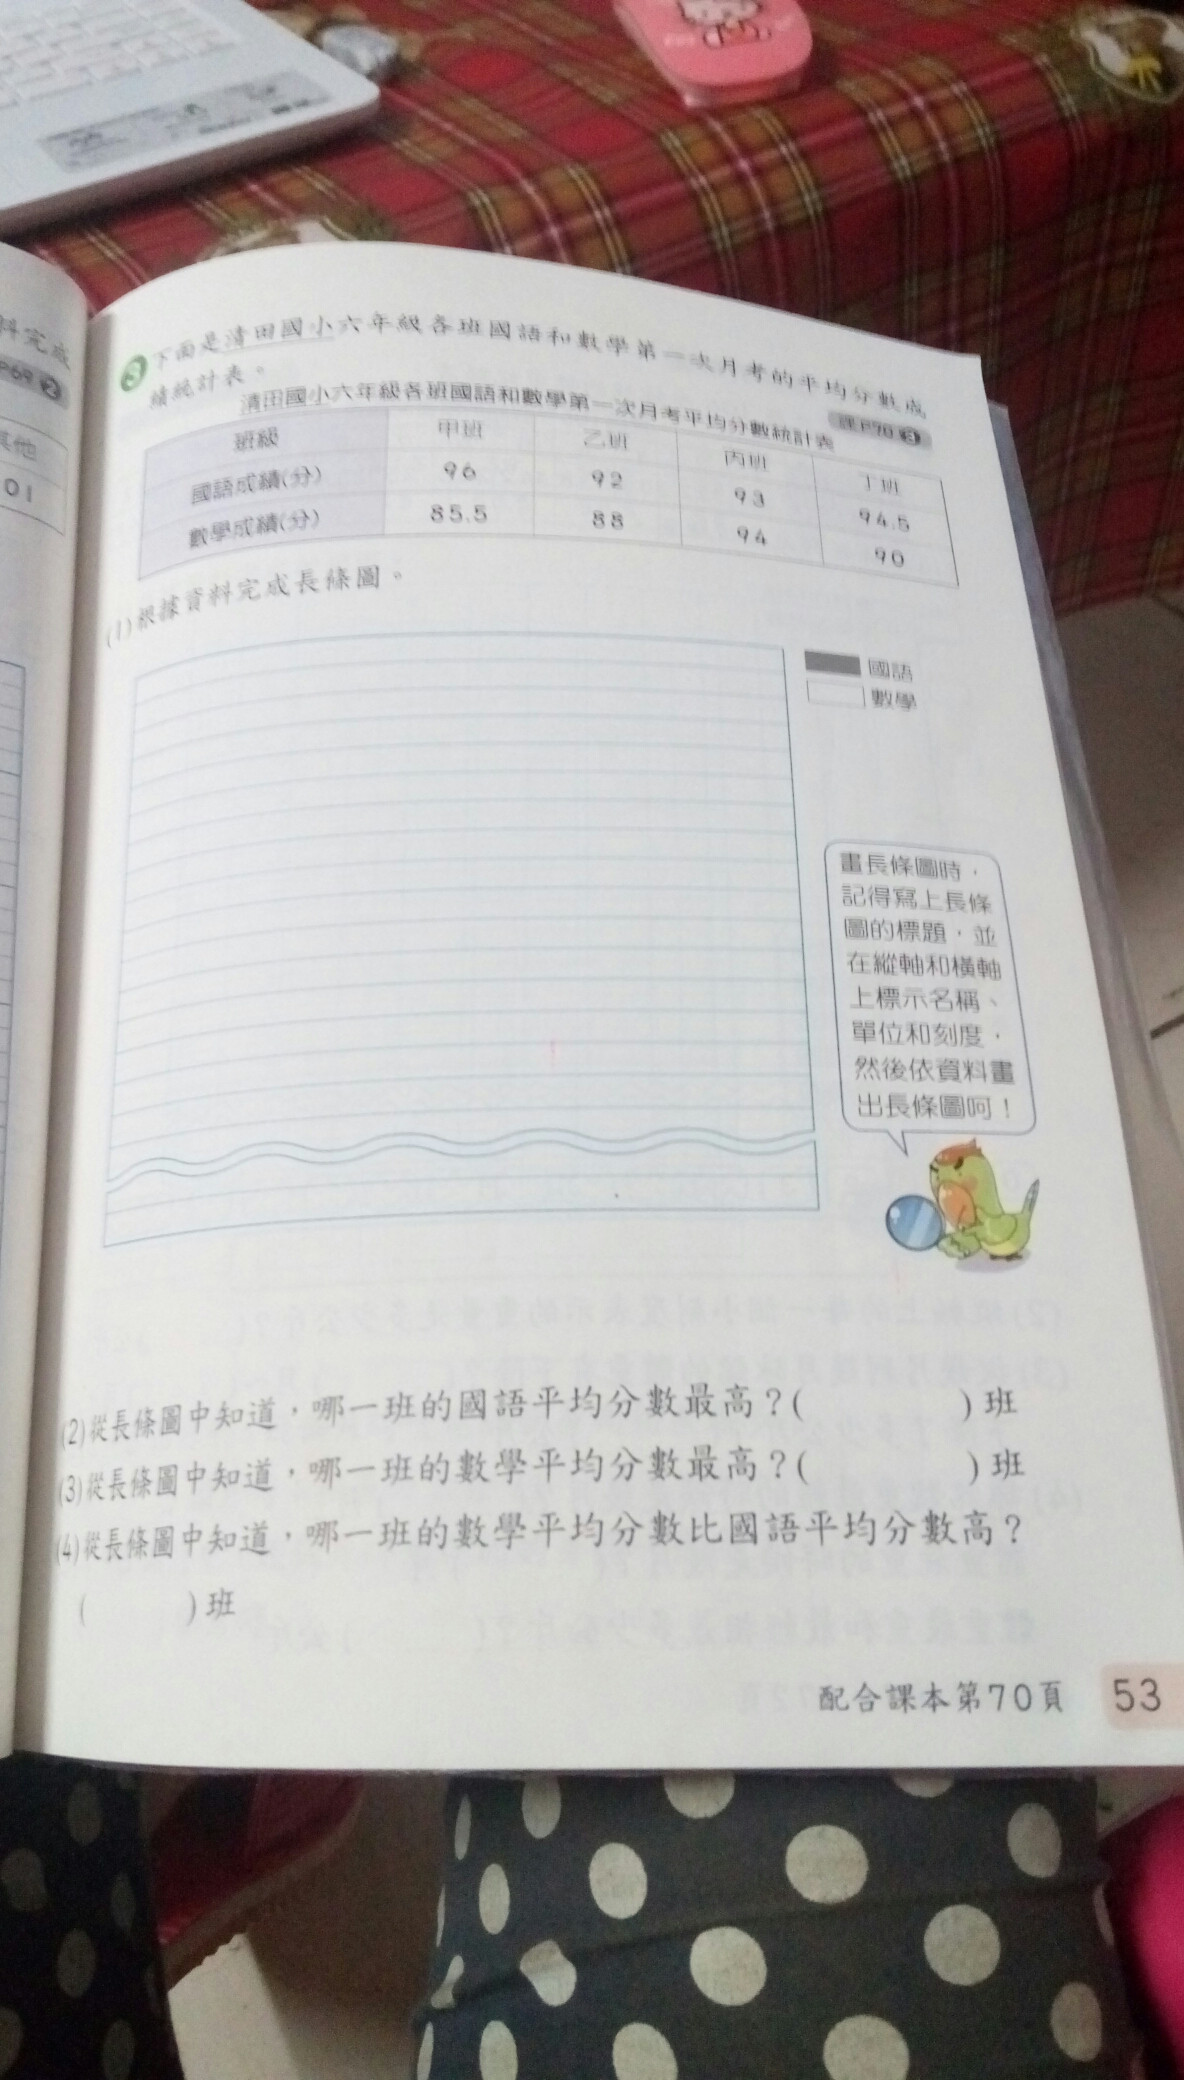 料完成
P69 2
其他
01
3 下面是清田國小六年級各班國語和數學第一次月考的平均分數成
績統計表。
課P70 3
清田國小六年級各班國語和數學第一次月考平均分數統計表
班級 甲班 乙班 丙班 丁班
國語成績(分) 96 92 93 94.5
數學成績(分) 85.5 88 94 90
(1)根據資料完成長條圖。
國語
數學
畫長條圖時，
記得寫上長條
圖的標題，並
在縱軸和橫軸
上標示名稱、
單位和刻度，
然後依資料畫
出長條圖呵！
(2)從長條圖中知道，哪一班的國語平均分數最高？( )班
(3)從長條圖中知道，哪一班的數學平均分數最高？( )班
(4)從長條圖中知道，哪一班的數學平均分數比國語平均分數高？
( )班
配合課本第70頁 53